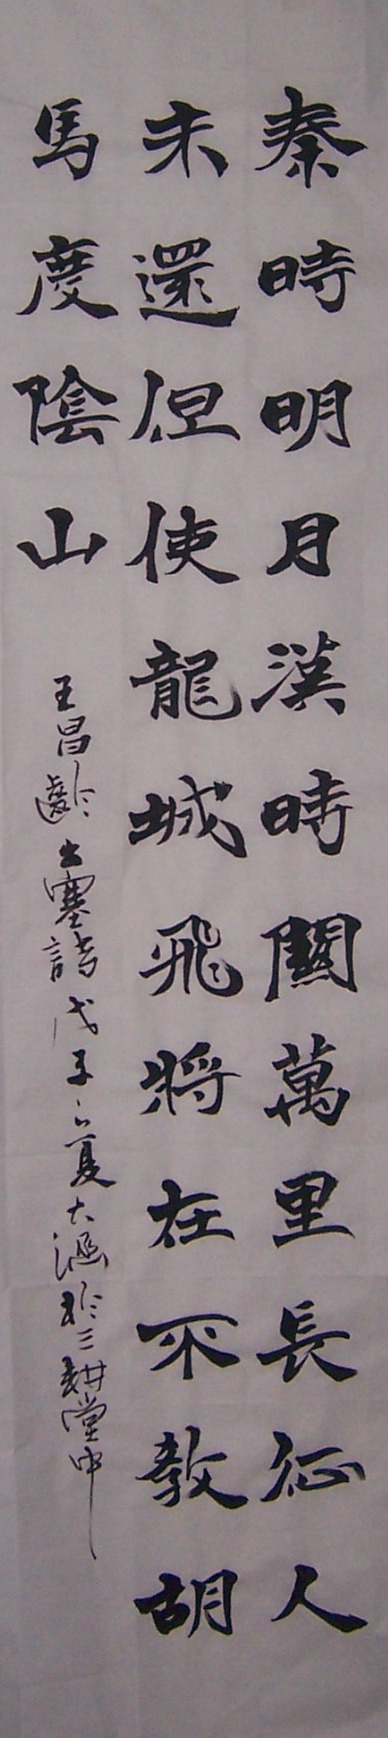 秦時明月漢時關萬里長征人
未還但使龍城飛將在不教胡
馬度陰山
王昌齡出塞詩戊子之夏大涵於三耕堂中